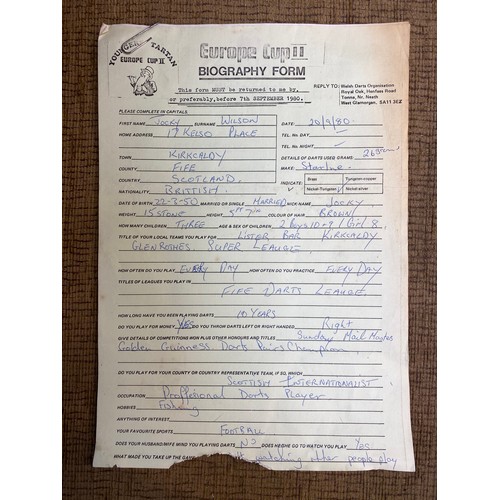 YOUNGERS TARTAN
EUROPE CUP II
Europe Cup II
BIOGRAPHY FORM
This form MUST be returned to me by,
or preferably, before 7th SEPTEMBER 1980.
REPLY TO: Welsh Darts Organisation
Royal Oak, Henfaes Road
Tonna, Nr. Neath
West Glamorgan. SA11 3EZ
PLEASE COMPLETE IN CAPITALS
FIRST NAME JOCKY SURNAME WILSON DATE: 20/9/80.
HOME ADDRESS 17 KELSO PLACE TEL. No. DAY
TEL. No. NIGHT
TOWN KIRKCALDY DETAILS OF DARTS USED GRAMS: 26 grams
COUNTY FIFE MAKE: Starline
COUNTRY SCOTLAND INDICATE: Brass Tungsten-copper
NATIONALITY BRITTISH Nickel-Tungsten Nickel-silver
DATE OF BIRTH 22-3-50 MARRIED OR SINGLE MARRIED NICK NAME JOCKY
HEIGHT WEIGHT 15 STONE COLOUR OF HAIR BROWN
HOW MANY CHILDREN THREE AGE & SEX OF CHILDREN 2 Boys 10-9 1 Girl 8
TITLE OF YOUR LOCAL TEAMS YOU PLAY FOR LISTER BAR KIRKCALDY
GLENROTHES SUPER LEAUGE
HOW OFTEN DO YOU PLAY EVERY DAY HOW OFTEN DO YOU PRACTICE EVERY DAY
TITLES OF LEAGUES YOU PLAY IN
FIFE DARTS LEAUGE.
HOW LONG HAVE YOU BEEN PLAYING DARTS 10 YEARS
DO YOU PLAY FOR MONEY YES DO YOU THROW DARTS LEFT OR RIGHT HANDED. Right
GIVE DETAILS OF COMPETITIONS WON PLUS OTHER HONOURS AND TITLES Sunday Mail
Golden Guinness Darts Pairs Champion
DO YOU PLAY FOR YOUR COUNTY OR COUNTRY REPRESENTATIVE TEAM, IF SO, WHICH
SCOTTISH INTERNATIONALIST
OCCUPATION Proffessional Darts Player
HOBBIES Fishing
ANYTHING OF INTEREST
YOUR FAVOURITE SPORTS FOOTBALL
DOES YOUR HUSBAND/WIFE MIND YOU PLAYING DARTS NO DOES HE/SHE GO TO WATCH YOU PLAY YES
WHAT MADE YOU TAKE UP THE GAME watching other people play